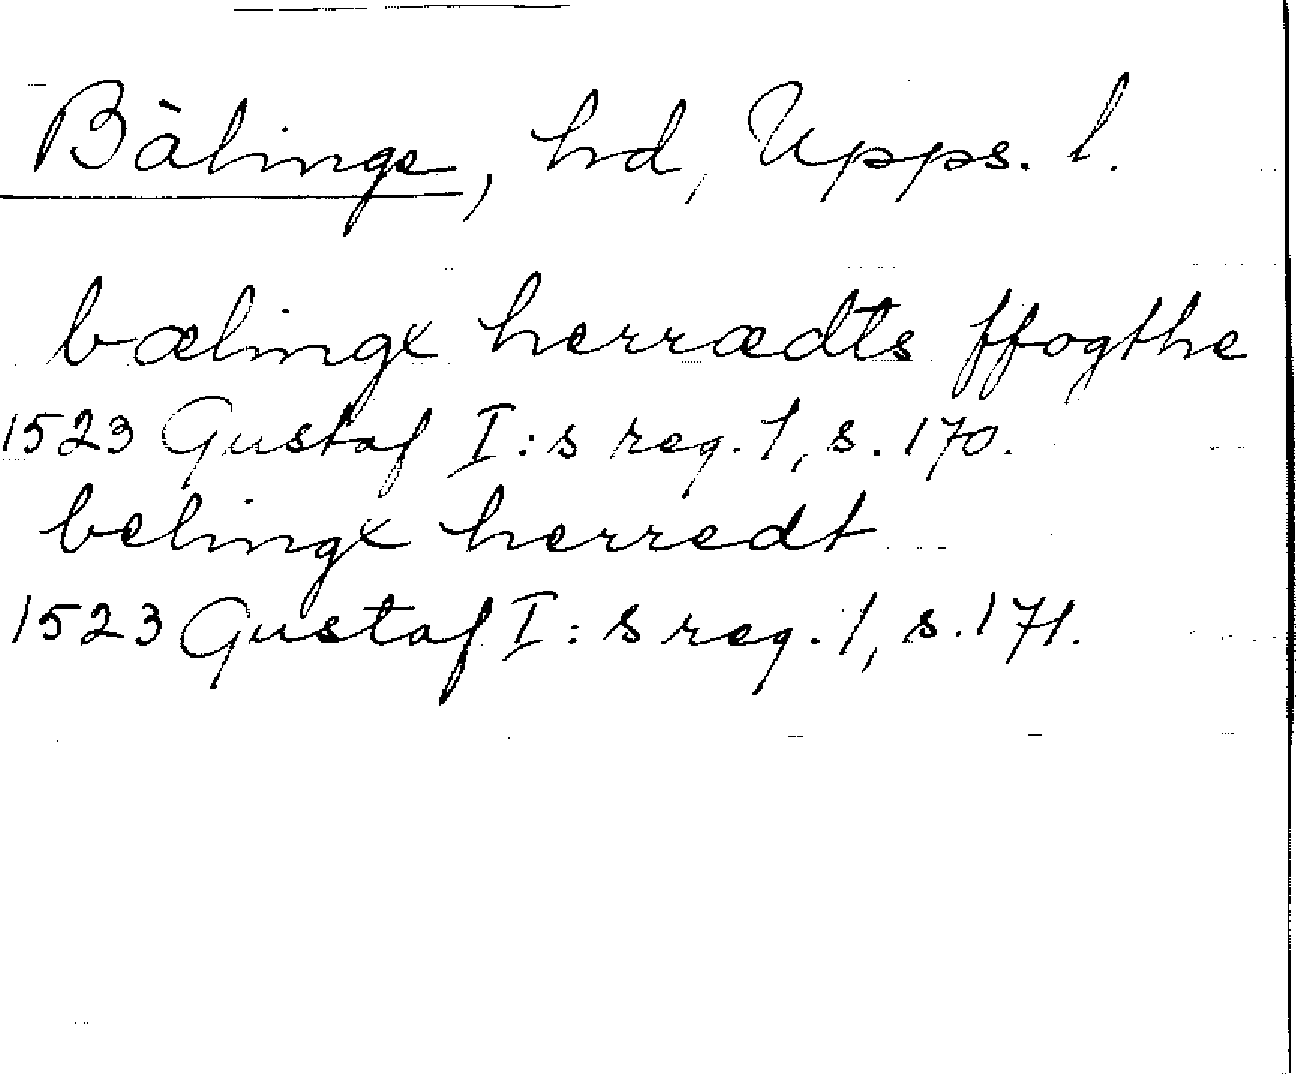 Bälinge, hd, Upps. l.
bælingx herrædts ffogthe
1523 Gustaf I:s reg. 1, s. 170.
belingx herredt
1523 Gustaf I:s reg. 1, s. 171.